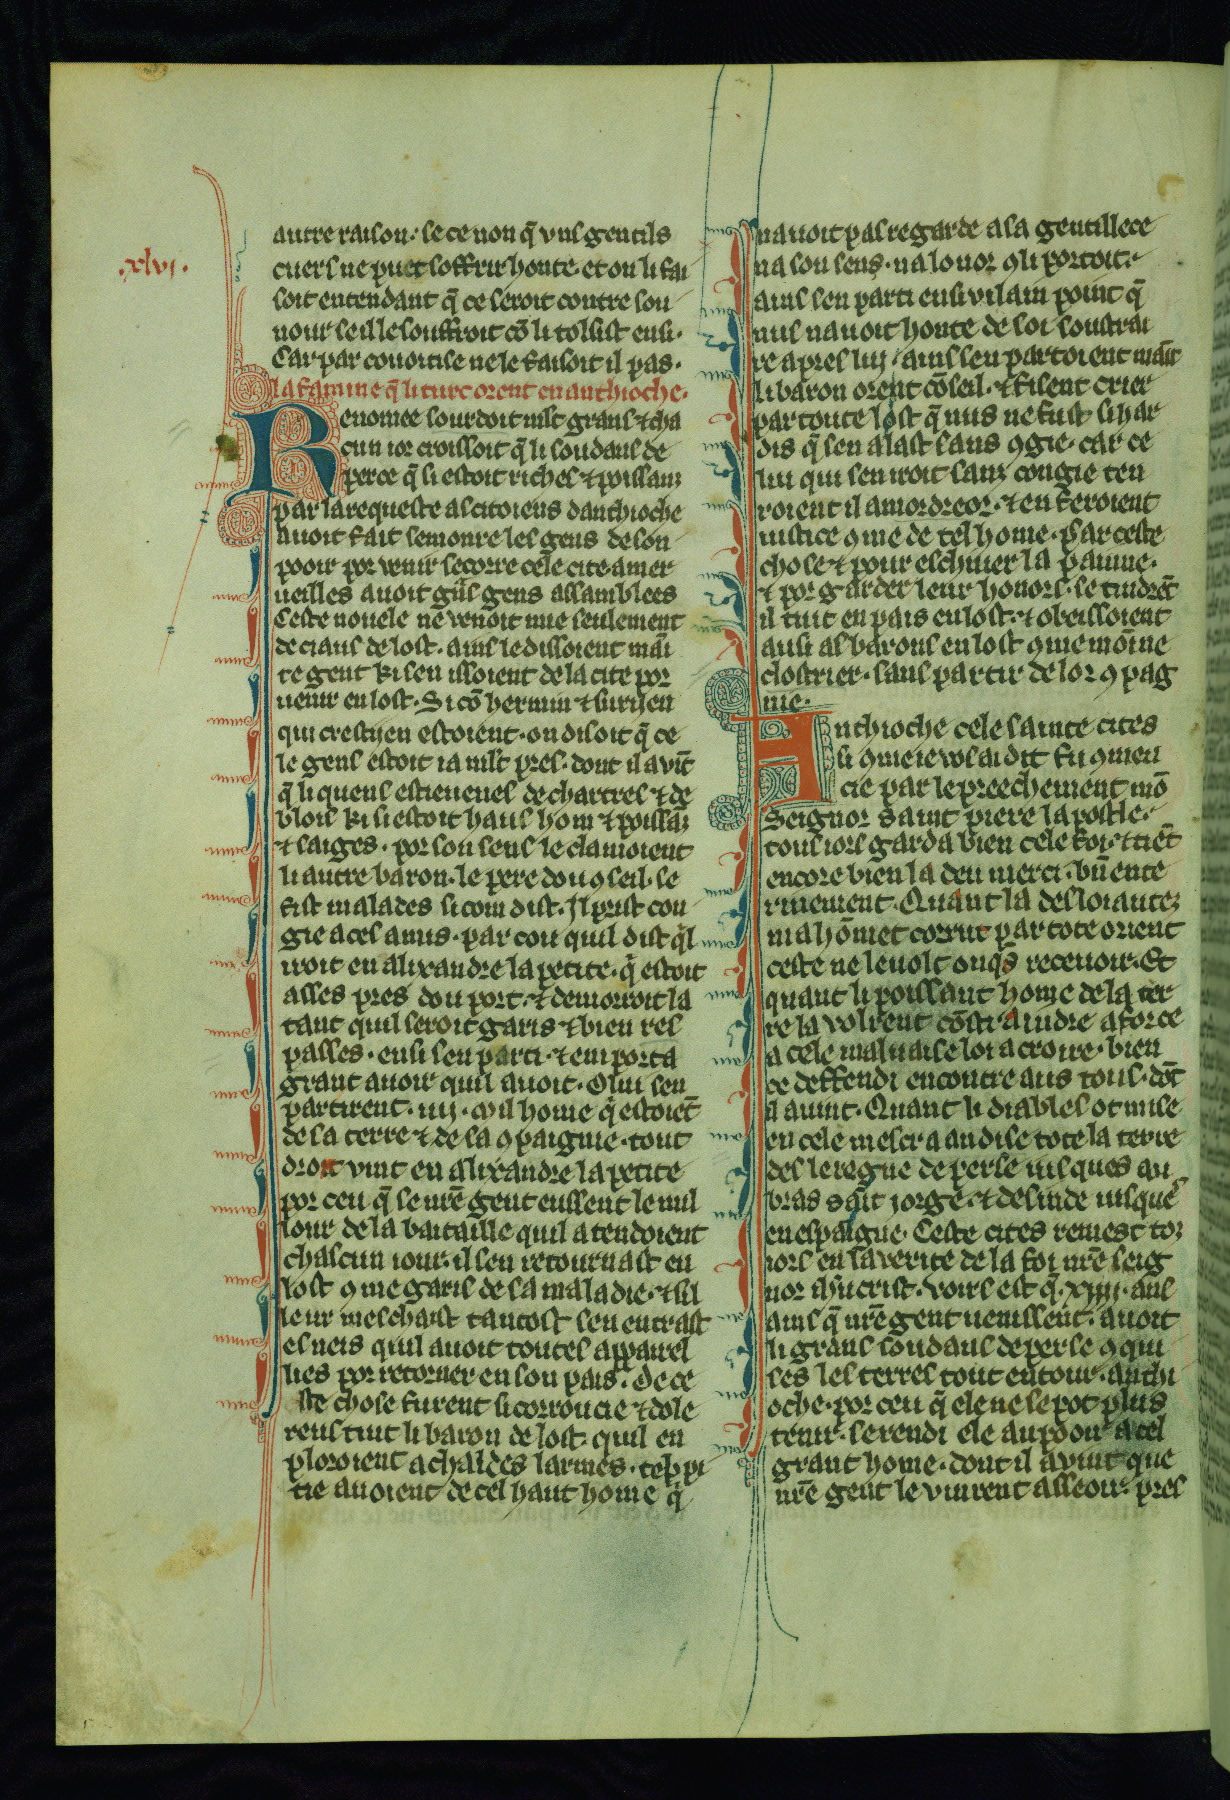 .xlvj.
autre raison. se ce non q̄ vns gentils
cuers ne puet soffrir honte. et on li fai
soit entendant q̄ ce seroit contre son
nour seil le souffroit cō li tolsist ensi.
Car par couoitise ne le faisoit il pas.
la famine q̄ li turc orent en anthioche.
Renomee sourdoit mlt grans ⁊ cha
cun ior croissoit q̄ li soudans de
perce q̄ si estoit riches ⁊ poissanz
par la requeste as citoiens danthioche
auoit fait semonre les gens de son
pooir por venir secorre cele cite a mer
ueilles auoit gͣns gens assamblees
Ceste nouele ne venoit mie seulement
de ciaus de lost. ains le dissoient māi
te gent ki sen issoient de la cite por
uenir en lost. Si cō hermin ⁊ surijen
qui crestijen estoient. on disoit q̄ ce
le gens estoit ia mlt pres. dont il auīt
q̄ li quens estieuenes de chartres ⁊ de
blois ki si estoit haus hom ⁊ poissāz
⁊ saiges. por son sens le clamoient
li autre baron. le pere dou ꝯseil. se
fist malades si com dist. Il prist con
gie a ces amis. par cou quil dist q̄l
iroit en alixandre la petite. q̄ estoit
asses pres dou port. ⁊ demorroit la
tant quil seroit garis ⁊ bien res
passes. ensi sen parti. ⁊ emporta
grant auoir quil auoit. O lui sen
partirent. iiij. mil home q̄ estoiēt
de sa terre ⁊ de sa ꝯpaignie. tout
droit vint en alixandre la petite
por ceu q̄ se nr̄e gent eussent le mil
lour de la bataille quil atendoient
chascun iour. il sen retournast en
lost ꝯme garis de sa maladie. ⁊ sil
leur meschaist tantost sen entrast
es neis quil auoit toutes appareil
lies por retorner en son pais. De ce
ste chose furent si corroucie ⁊ dole
rens tuit li baron de lost. quil en
ploroient a chaldes larmes. tel pi
tie auoient de cel haut home q̄
nauoit pas regarde a sa gentillece
na son sens. na lonor ꝯ li portoit.
ains sen parti ensi vilain point q̄
nus nauoit honte de soi soustrai
re apres luj. ains sen partoient māit
li baron orent cōseil. ⁊ fisent crier
par toute lost q̄ nus ne fust si har
dis q̄ sen alast sans ꝯgie. car ce
lui qui sen iroit sanz congie ten
roient il a mordreor. ⁊ en feroient
iustice ꝯme de tel home. par ceste
chose ⁊ pour eschiuer la painne.
⁊ por garder leur honors. se tindrēt
il tuit en pais en lost. ⁊ obeissoient
ausi as barons en lost ꝯme moīne
clostrier. sans partir de lor ꝯpag
nie.
Anthioche cele sainte cites
si ꝯme ie vos ai dit fu ꝯmen
cie par le preechement mō
Seignor saint piere lapostle.
tous iors garda bien cele foi. ⁊ tiēt
encore bien la deu merci. bn̄ ente
rinement. Quant la desloiautez
mahōmet corrut par tote orient
ceste ne le volt onqs̄ receuoir. Et
quant li poissant home de la ter
re la volrent cōstraindre a force
a cele maluaise loi a croire. bien
ce deffendi encontre aus tous. dōt
il auint. Quant li diables ot mise
en cele mescraandise tote la terre
des le regne de perse iusques au
bras saīt jorge. et des inde iusque
en espaigne. Ceste cites remest toz
iors en la verite de la foi nr̄e seig
nor ihūcrist. voirs est q̄. xiiij. ans
ains q̄ nr̄e gent uenissent. auoit
li grans soudans de perse ꝯqui
ses les terres tout entour. anthi
oche. por ceu q̄ ele ne se pot plus
tenir. se rendi ele au pooir a cel
grant home. dont il avint que
nr̄e gent le vinrent asseoir. pres